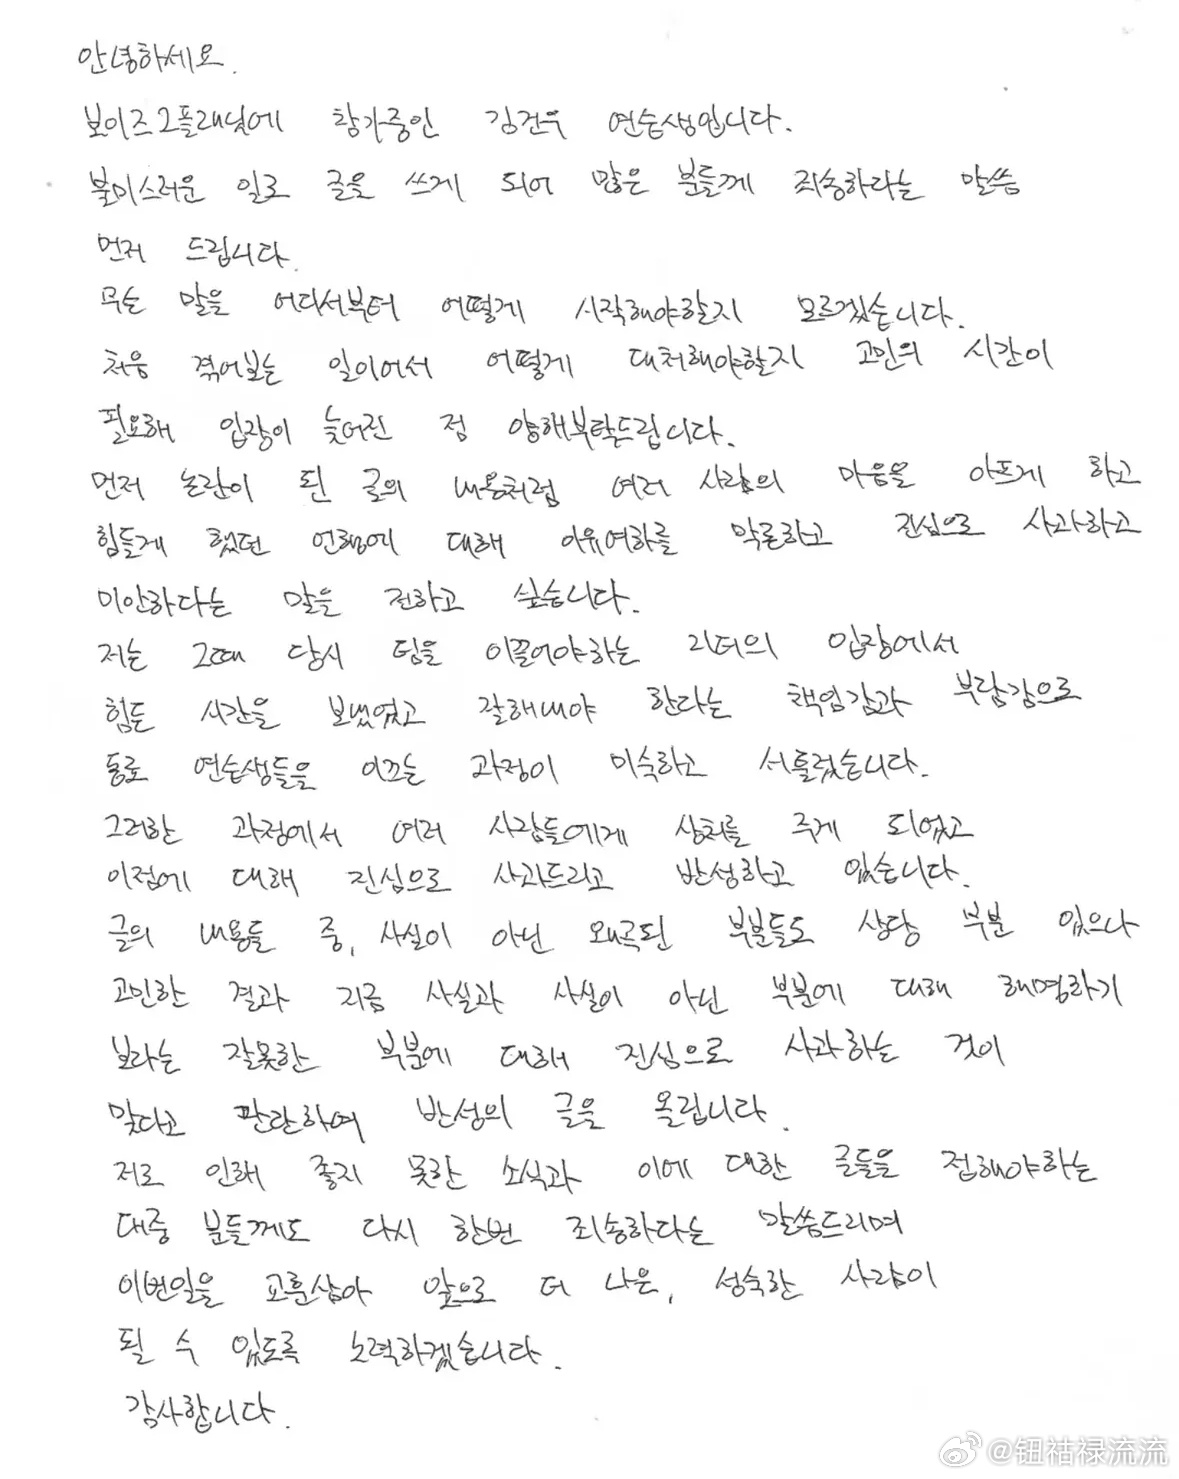 안녕하세요.
보이즈2플래닛에 참가중인 김건우 연습생입니다.
불미스러운 일로 글을 쓰게 되어 많은 분들께 죄송하라는 말씀
먼저 드립니다.
무슨 말을 어디서부터 어떻게 시작해야할지 모르겠습니다.
처음 겪어보는 일이어서 어떻게 대처해야할지 고민의 시간이
필요해 입장이 늦어진 점 양해부탁드립니다.
먼저 논란이 된 글의 내용처럼 여러 사람의 마음을 아프게 하고
힘들게 했던 언행에 대해 이유여하를 막론하고 진심으로 사과하고
미안하다는 말을 전하고 싶습니다.
저는 그때 당시 팀을 이끌어야하는 리더의 입장에서
힘든 시간을 보냈었고 잘해내야 한다는 책임감과 부담감으로
동료 연습생들을 이끄는 과정이 미숙하고 서툴렀습니다.
그러한 과정에서 여러 사람들에게 상처를 주게 되었고
이점에 대해 진심으로 사과드리고 반성하고 있습니다.
글의 내용들 중, 사실이 아닌 왜곡된 부분들도 상당 부분 있으나
고민한 결과 지금 사실과 사실이 아닌 부분에 대해 해명하기
보다는 잘못한 부분에 대해 진심으로 사과하는 것이
맞다고 판단하여 반성의 글을 올립니다.
저로 인해 좋지 못한 소식과 이에 대한 글들을 접해야하는
대중 분들께도 다시 한번 죄송하다는 말씀드리며
이번일을 교훈삼아 앞으로 더 나은, 성숙한 사람이
될 수 있도록 노력하겠습니다.
감사합니다.
@钮祜禄流流